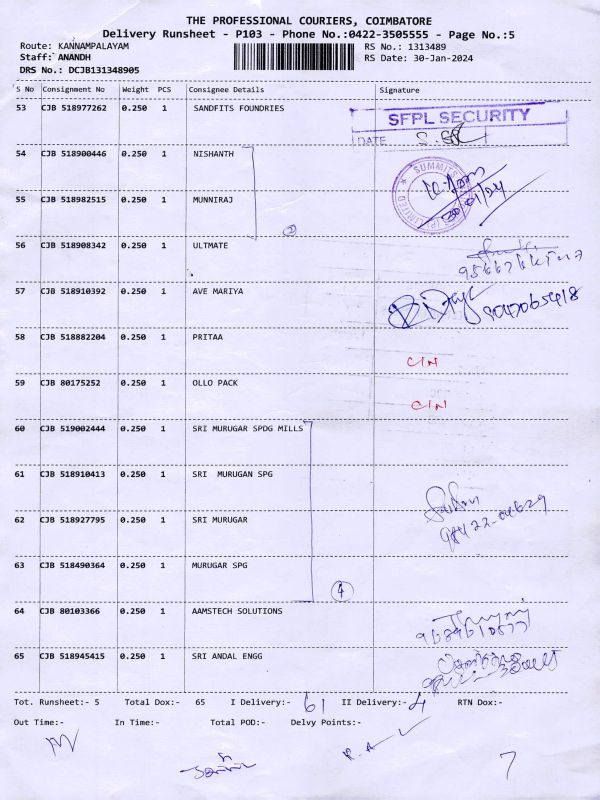 THE PROFESSIONAL COURIERS, COIMBATORE
Delivery Runsheet - P103 - Phone No.:0422-3505555 - Page No.:5
Route: KANNAMPALAYAM RS No.: 1313489
Staff: ANANDH RS Date: 30-Jan-2024
DRS No.: DCJB131348905
S No Consignment No Weight PCS Consignee Details Signature
53 CJB 518977262 0.250 1 SANDFITS FOUNDRIES
SFPL SECURITY
DATE
54 CJB 518900446 0.250 1 NISHANTH
SUMMITS
LIMITED
55 CJB 518982515 0.250 1 MUNNIRAJ
2
56 CJB 518908342 0.250 1 ULTMATE
57 CJB 518910392 0.250 1 AVE MARIYA
58 CJB 518882204 0.250 1 PRITAA
C/N
59 CJB 80175252 0.250 1 OLLO PACK
C/N
60 CJB 519002444 0.250 1 SRI MURUGAR SPDG MILLS
61 CJB 518910413 0.250 1 SRI MURUGAN SPG
62 CJB 518927795 0.250 1 SRI MURUGAR
98422-04629
63 CJB 518490364 0.250 1 MURUGAR SPG
4
64 CJB 80103366 0.250 1 AAMSTECH SOLUTIONS
65 CJB 518945415 0.250 1 SRI ANDAL ENGG
Tot. Runsheet:- 5 Total Dox:- 65 I Delivery:- 61 II Delivery:- 4 RTN Dox:-
Out Time:- In Time:- Total POD:- Delvy Points:-
7